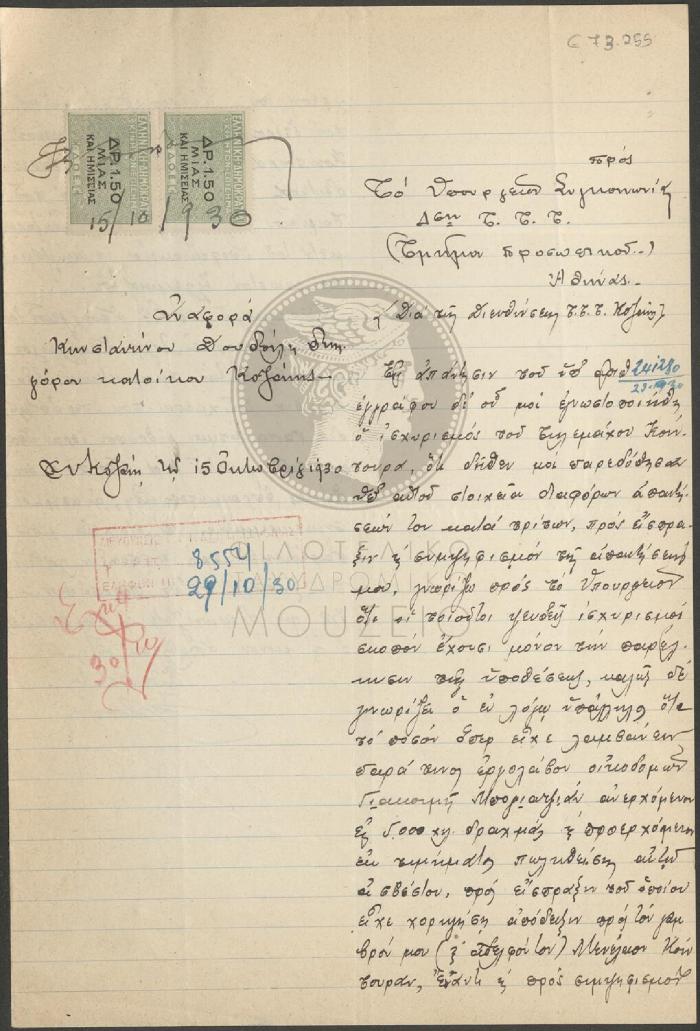 673.255
ΕΛΛΗΝΙΚΗ ΔΗΜΟΚΡΑΤΙΑ
ΔΡ. 1.50
ΜΙΑΣ
ΚΑΙ ΗΜΙΣΕΙΑΣ
ΕΛΛΗΝΙΚΗ ΔΗΜΟΚΡΑΤΙΑ
ΔΡ. 1.50
ΜΙΑΣ
ΚΑΙ ΗΜΙΣΕΙΑΣ
15/10/930
πρὸς
Τὸ Ὑπουργεῖον Συγκοινωνίας
Δσιν Τ.Τ.Τ.
(Τμῆμα Προσωπικοῦ)
Ἀθήνας
(Διὰ τῆς Διευθύνσεως Τ.Τ.Τ. Κοζάνης)
Ἀναφορὰ
Κωνσταντίνου δικη-
γόρου κατοίκου Κοζάνης
Ἐν Κοζάνῃ τῇ 15 Ὀκτωβρίου 1930
Εἰς ἀπάντησιν τοῦ ὑπ' ἀριθ. 24120
ἐγγράφου δι' οὗ μοὶ ἐγνωστοποιήθη
ὁ ἰσχυρισμὸς τοῦ Τηλεμάχου Κου-
τουρα, ὅτι δῆθεν μοὶ παρεδόθησαν
ὑπ' αὐτοῦ στοιχεῖα διαφόρων ἀπαιτή-
σεών του κατὰ τρίτων, πρὸς εἴσπρα-
ξιν ἢ συμψηφισμὸν τῆς ἀπαιτήσεώς
μου, γνωρίζω πρὸς τὸ Ὑπουργεῖον
ὅτι οἱ τοιοῦτοι ψευδεῖς ἰσχυρισμοὶ
σκοπὸν ἔχουσι μόνον τὴν παρέλ-
κυσιν τῆς ὑποθέσεως, καλῶς δὲ
γνωρίζει ὁ ἐν λόγῳ ὑπάλληλος ὅτι
τὸ ποσὸν ὅπερ εἶχε λαμβάνειν
παρά τινος ἐργολάβου οἰκοδομῶν
ἀνερχόμενον
εἰς 5.000 δραχμὰς ἢ προερχόμενον
ἐκ τιμήματος πωληθείσης αὐτῷ
ἀσβέστου, πρὸς εἴσπραξιν τοῦ ὁποίου
εἶχε χορηγήσῃ ἀπόδειξιν πρὸς τὸν γαμ-
βρόν μου (ἢ ἀδελφόν του) Μενέλαον Κου-
τουραν, ἔναντι ἢ πρὸς συμψηφισμὸν
8554
29/10/30
30/
ΦΙΛΟΤΕΛΙΚΟ
ΤΑΧΥΔΡΟΜΙΚΟ
ΜΟΥΣΕΙΟ